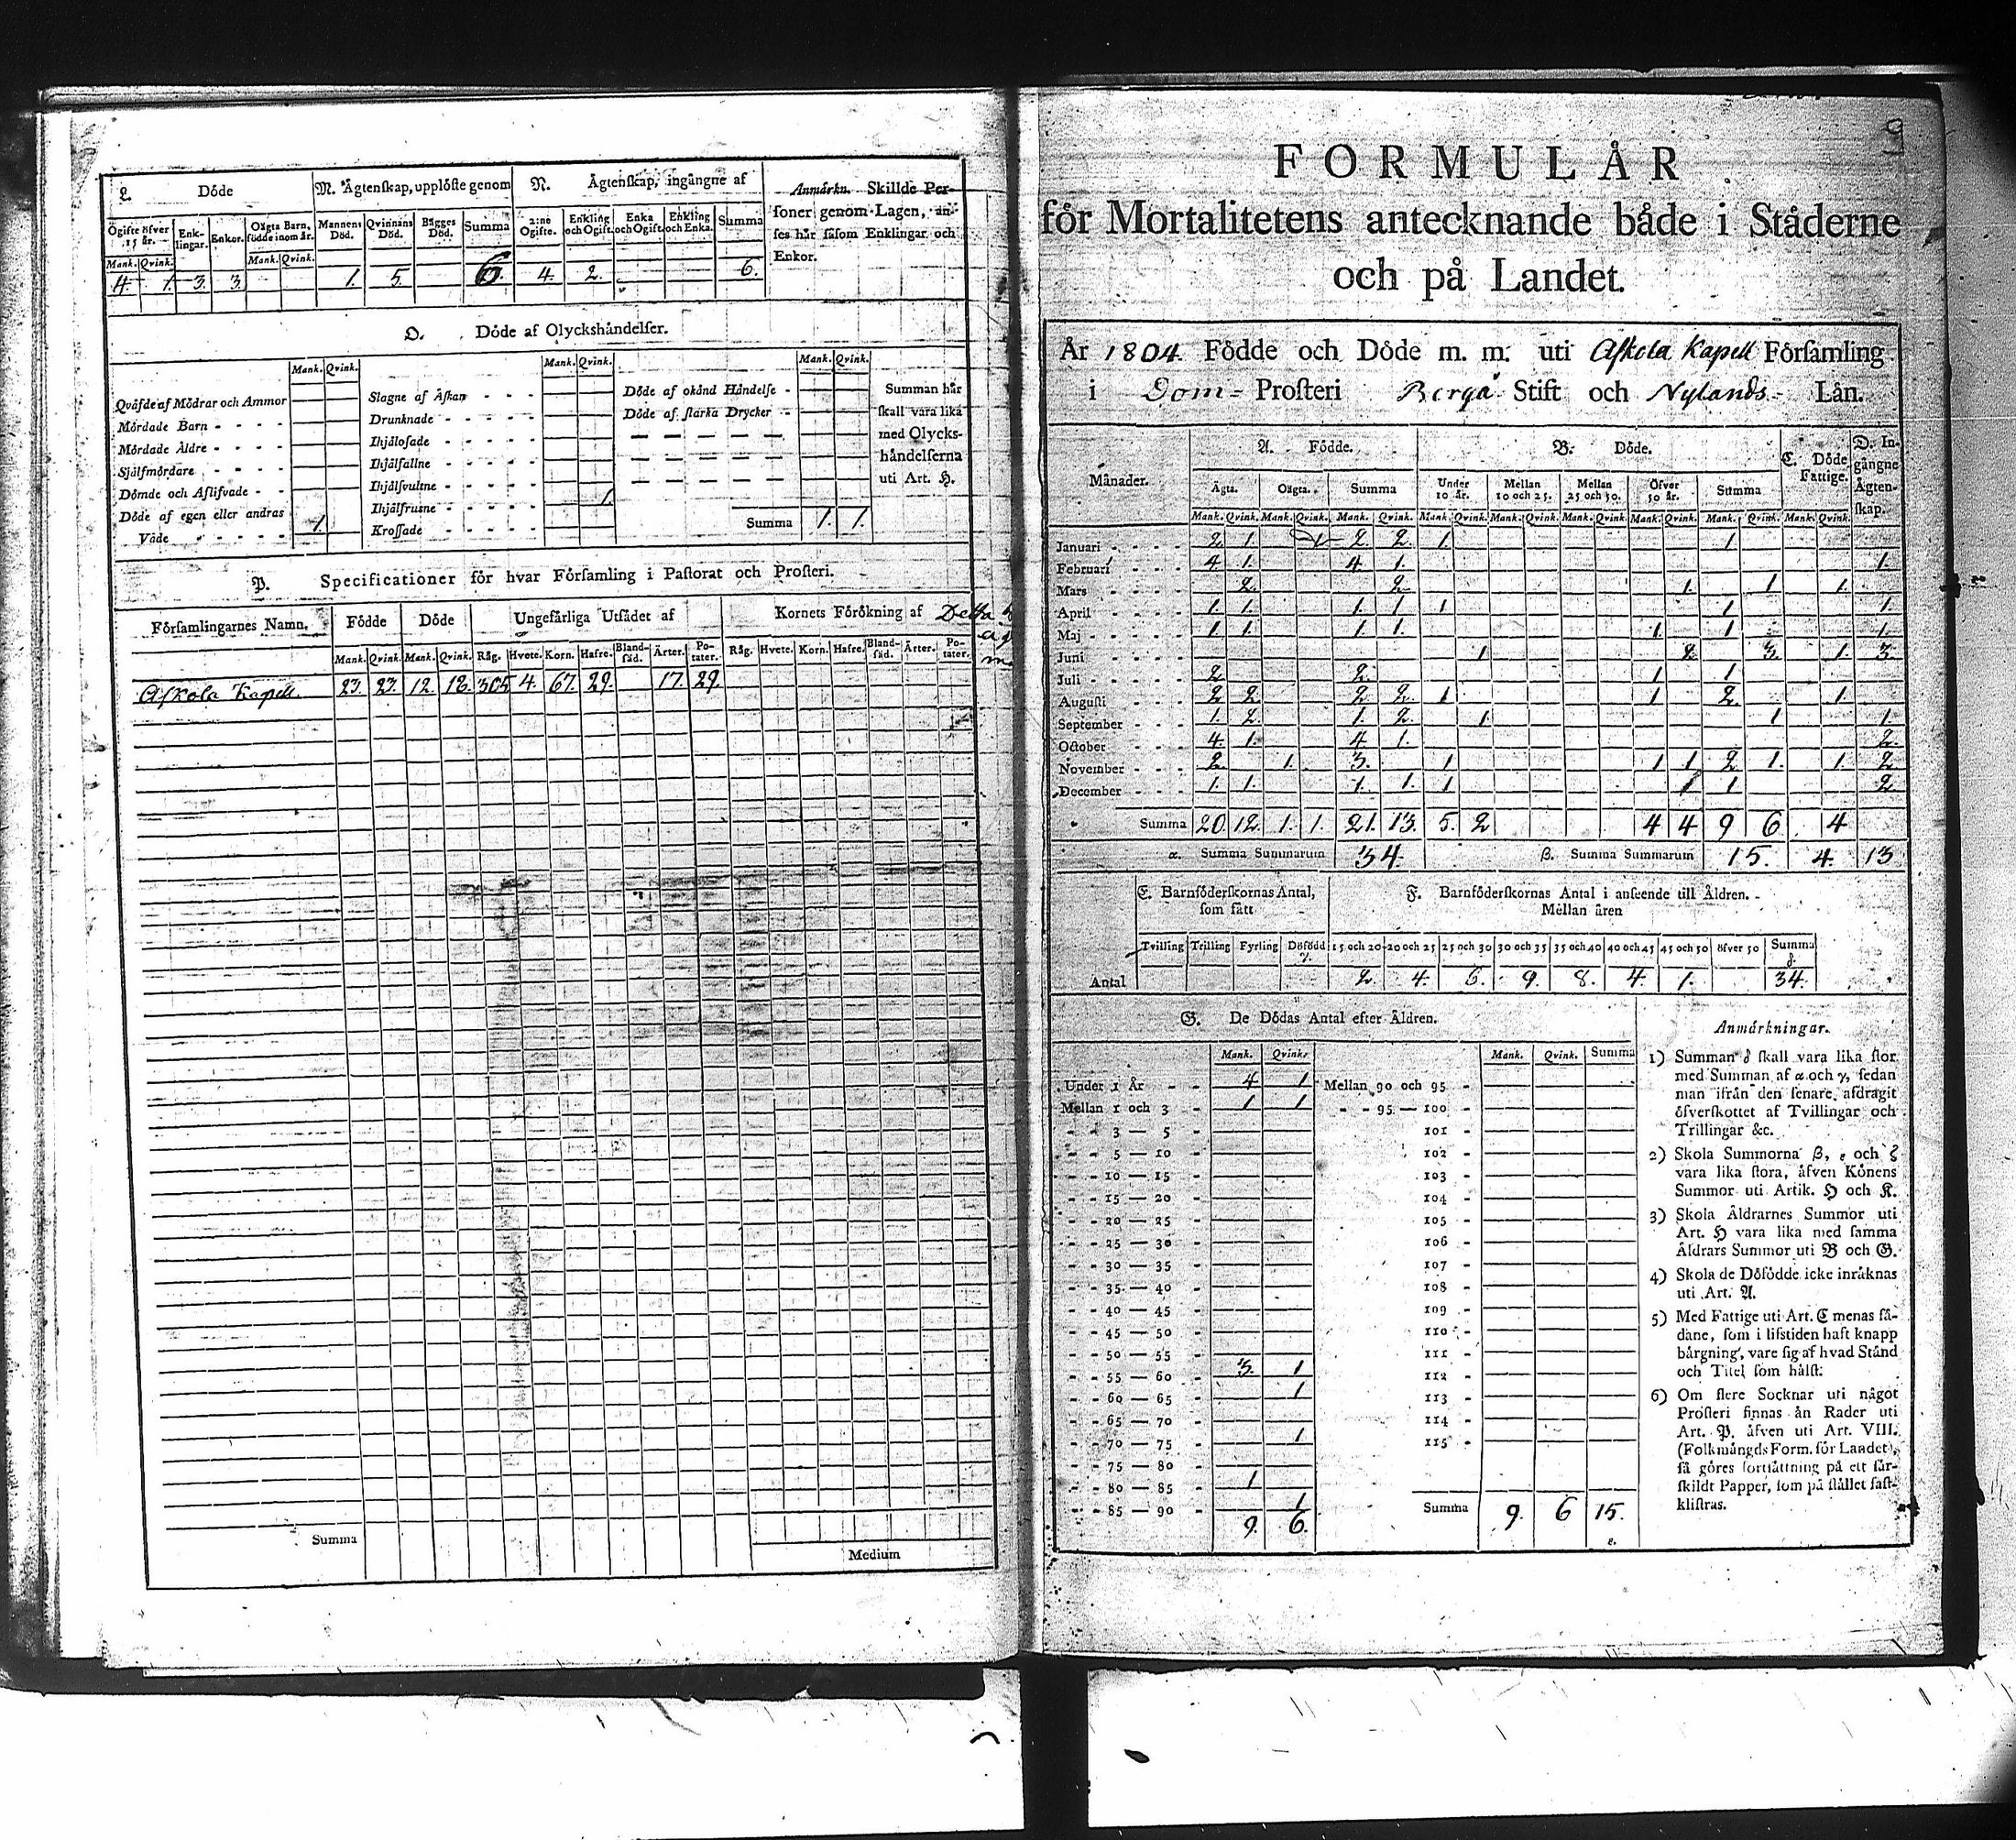 L. Döde
M. Ägtenskap, upplöste genom
N. Ägtenskap, ingångne af
Anmärkn. Skillde Per-
soner genom Lagen, an-
ses här såsom Enklingar och
Enkor.
Ogifte öfver 15 år. Enk-lingar. Enkor. Oägta Barn, födde inom år. Mannens Död. Qvinnans Död. Bägges Död. Summa 2:ne Ogifte. Enkling och Ogift. Enka och Ogift. Enkling och Enka. Summa
Mank. Qvink. Mank. Qvink.
4. 1. 3. 3. 1. 5. 6. 4. 2. 6.
O. Döde af Olyckshändelser.
Mank. Qvink. Mank. Qvink. Mank. Qvink.
Qväfde af Mödrar och Ammor
Mördade Barn - - - -
Mördade Äldre - - - -
Självmördare - - - -
Dömde och Aflifvade - -
Döde af egen eller andras
Våde - - - - - 1.
Slagne af Åskan - - -
Drunknade - - - - -
Ihjälosade - - - - -
Ihjälfallne - - - - -
Ihjälsvultne - - - - -
Ihjälfrusne - - - - - 1.
Krossade - - - - -
Döde af okänd Händelse -
Döde af starka Drycker -
Summa 1. 1.
Summan här
skall vara lika
med Olycks-
händelserna
uti Art. H.
P. Specificationer för hvar Församling i Pastorat och Prosteri.
Församlingarnes Namn. Födde Döde Ungefärliga Utsädet af Kornets Förökning af
Mank. Qvink. Mank. Qvink. Råg. Hvete. Korn. Hafre. Bland-säd. Ärter. Po-tater. Råg. Hvete. Korn. Hafre. Bland-säd. Ärter. Po-tater.
Askola Kapell 23. 23. 12. 16. 305 4. 67. 29. 17. 29.
Summa
Medium
9
FORMULÄR
för Mortalitetens antecknande både i Städerne
och på Landet.
År 1804. Födde och Döde m. m. uti Askola Kapell Församling
i Dom- Prosteri Borgå Stift och Nylands- Län.
Månader. A. Födde. B. Döde. C. Döde Fattige. D. In-gångne Ägten-skap.
Ägta. Oägta. Summa Under 10 år. Mellan 10 och 25. Mellan 25 och 50. Öfver 50 år. Summa
Mank. Qvink. Mank. Qvink. Mank. Qvink. Mank. Qvink. Mank. Qvink. Mank. Qvink. Mank. Qvink. Mank. Qvink. Mank. Qvink.
Januari - - - - 2. 1. 1 2. 2. 1. 1
Februari - - - 4 1. 4 1. 1.
Mars - - - - 2. 2. 1. 1 1.
April - - - - 1. 1. 1. 1 1 1 1.
Maj - - - - 1. 1. 1. 1. 1. 1 1.
Juni - - - - 1 2. 3. 1. 3.
Juli - - - - 2 2. 1 1
Augusti - - - 2 2. 2 2 1 1 2. 1.
September - - - 1. 2. 1. 2. 1. 1 1.
October - - - 4. 1. 4 1. 2.
November - - - 2. 1. 3. 1 1 1 2 1. 1. 2
December - - - 1. 1. 1. 1. 1 1 1 2
Summa 20. 12. 1. 1. 21. 13. 5. 2 4 4 9 6 4
α Summa Summarum 34. β. Summa Summarum 15. 4. 13
E. Barnföderskornas Antal,
som fått
F. Barnföderskornas Antal i anseende till Åldren.
Mellan åren
Tvilling Trilling Fyrling Döfödd γ. 15 och 20 20 och 25 25 och 30 30 och 35 35 och 40 40 och 45 45 och 50 öfver 50 Summa δ.
Antal 2. 4. 6. 9. 8. 4. 1. 34.
G. De Dödas Antal efter Åldren.
Mank. Qvink. Mank. Qvink. Summa
Under 1 År - - 4 1 Mellan 90 och 95 -
Mellan 1 och 3 - 1 1 - - 95 — 100 -
- - 3 — 5 - 101 -
- - 5 — 10 - 102 -
- - 10 — 15 - 103 -
- - 15 — 20 - 104 -
- - 20 — 25 - 105 -
- - 25 — 30 - 106 -
- - 30 — 35 - 107 -
- - 35 — 40 - 108 -
- - 40 — 45 - 109 -
- - 45 — 50 - 110 -
- - 50 — 55 - 111 -
- - 55 — 60 - 3. 1 112 -
- - 60 — 65 - 1 113 -
- - 65 — 70 - 114 -
- - 70 — 75 - 1 115 -
- - 75 — 80 -
- - 80 — 85 - 1
- - 85 — 90 - 1 Summa 9. 6 15.
9. 6. ε.
Anmärkningar.
1) Summan δ skall vara lika stor
med Summan af α och γ, sedan
man ifrån den senare afdragit
öfverskottet af Tvillingar och
Trillingar &c.
2) Skola Summorna β, ε och ζ
vara lika stora, äfven Könens
Summor uti Artik. H och K.
3) Skola Åldrarnes Summor uti
Art. H vara lika med samma
Åldrars Summor uti B och G.
4) Skola de Döfödde icke inräknas
uti Art. A.
5) Med Fattige uti Art. C menas så-
dane, som i lifstiden haft knapp
bärgning, vare sig af hvad Stånd
och Titel som hälst.
6) Om flere Socknar uti något
Prosteri finnas än Rader uti
Art. P. äfven uti Art. VIII.
(Folkmängds Form. för Landet),
så göres fortsättning på ett sär-
skildt Papper, som på stället fast-
klistras.